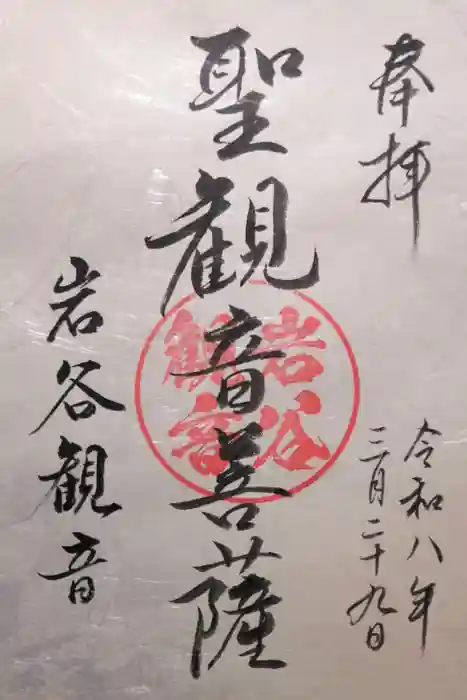 奉拝
令和八年
三月二十九日
聖観音菩薩
岩谷観音
岩谷
観音